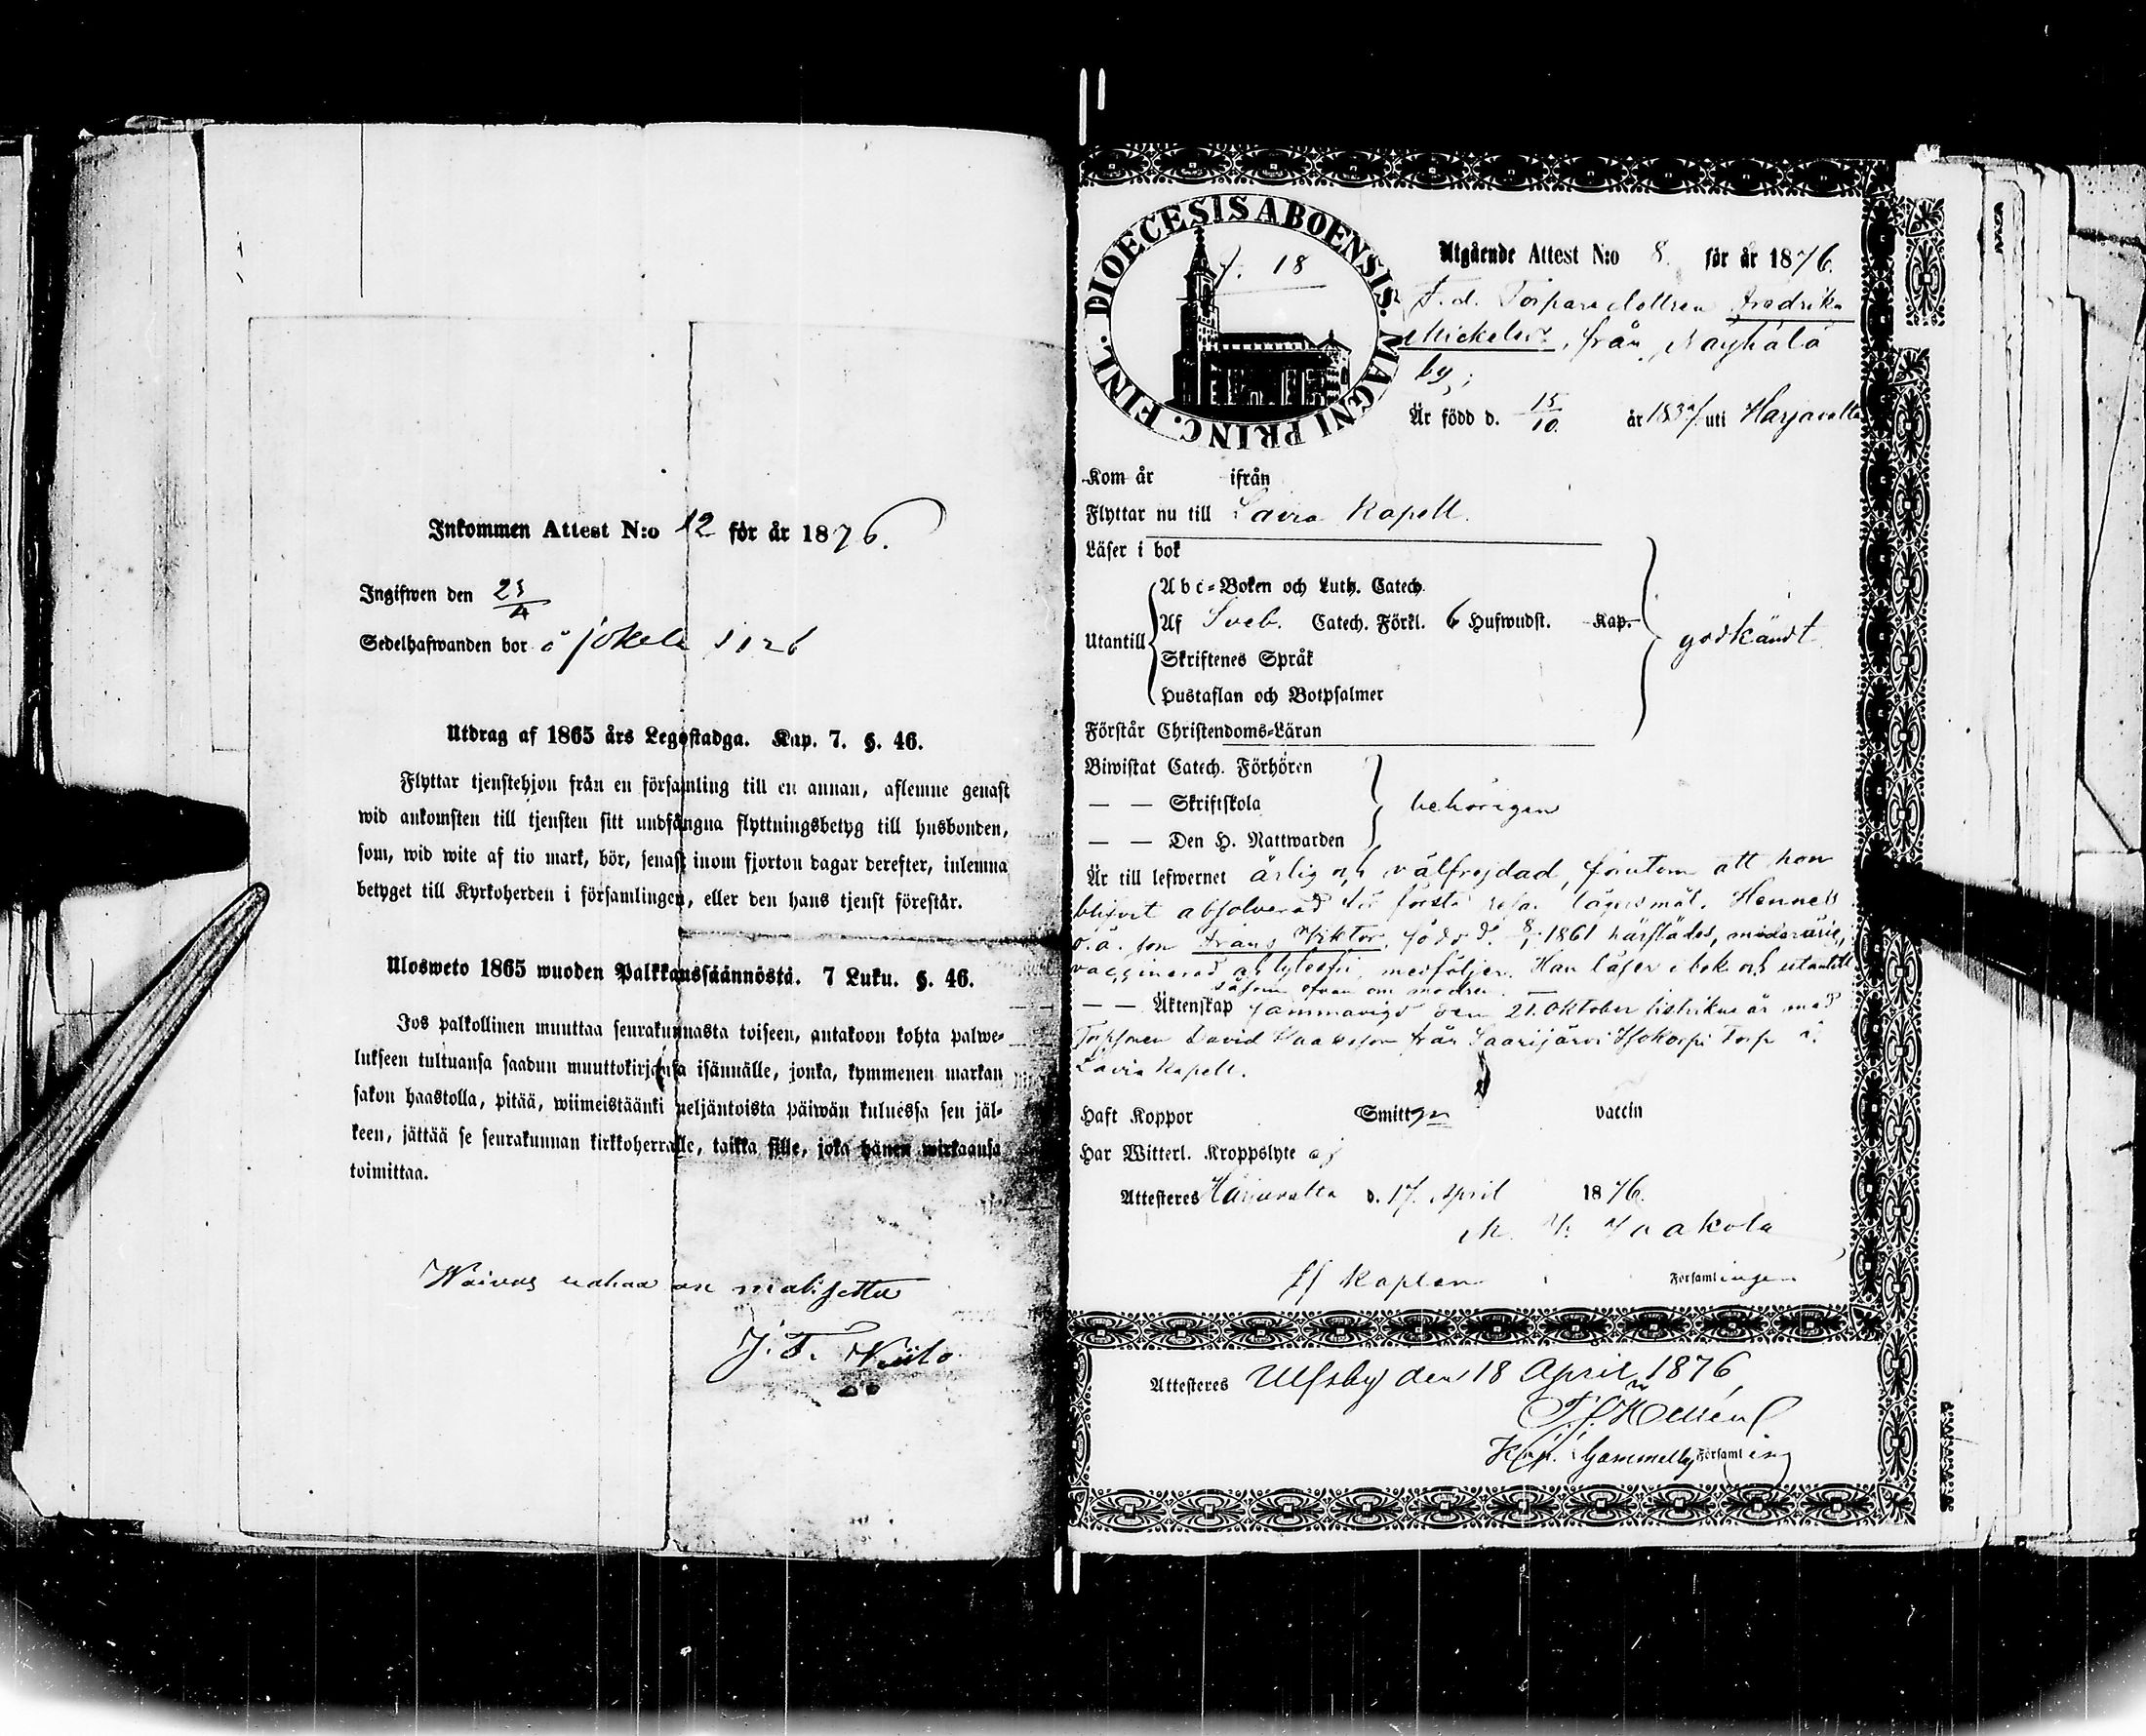 Inkommen Attest N:o 12 för år 1876.
Ingifwen den 25/4
Sedelhafwanden bor å Jokela
Utdrag af 1865 års Legostadga. Kap. 7. §. 46.
Flyttar tjenstehjon från en församling till en annan, aflemne genast
wid ankomsten till tjensten sitt undfångna flyttningsbetyg till husbonden,
som, wid wite af tio mark, bör, senast inom fjorton dagar derefter, inlemna
betyget till Kyrkoherden i församlingen, eller den hans tjenst förestår.
Ulosweto 1865 wuoden Palkkaussäännöstä. 7 Luku. §. 46.
Jos palkollinen muuttaa seurakunnasta toiseen, antakoon kohta palwe-
lukseen tultuansa saadun muuttokirjansa isännälle, jonka, kymmenen markan
sakon haastolla, pitää, wiimeistäänki neljäntoista päiwän kuluessa sen jäl-
keen, jättää se seurakunnan kirkkoherralle, taikka sille, joka hänen wirkaansa
toimittaa.
Waivas rahaa on maksettu
J. F.
DIOECESIS ABOENSIS. MAGNI PRINC. FINL.
18
Utgående Attest N:o 8. för år 1876.
F. d. Torpare dottren Fredrika
Mickelsd:r, från Näyhälä
by;
Är född d. 15/10. år 1837. uti Harjavalta
Kom år ifrån
Flyttar nu till Lavia Kapell.
Läser i bok
Abc-Boken och Luth. Catech.
Utantill Af Sveb. Catech. Förkl. 6 Hufwudst. Kap. godkändt.
Skriftenes Språk
Hustaflan och Botpsalmer
Förstår Christendoms-Läran
Biwistat Catech. Förhören
— — Skriftskola behörigen
— — Den H. Nattwarden
Är till lefwernet ärlig och välfrejdad, förutom att hon
blifvit absolverad för första resan lägersmål. Hennes
o.ä. son Frans Viktor, född d. 1861 härstädes,
vaccinerad och lytesfri, medföljer. Han läser i bok och utantill
såsom ofvan om modren.
— — Äktenskap sammanvigd den 21. Oktober sistlidne år med
Torpsonen David Isaksson från Saarijärvi Isokorpi Torp i
Lavia Kapell.
Haft Koppor Smittgn vaccin
Har Witterl. Kroppslyte ej
Attesteres Harjavalta d. 17. April 1876.
Kaplan Församlingen
Attesteres Ulfsby den 18 April 1876
Kap. i Gammelby Församling